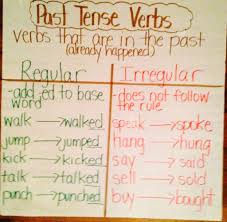 Past Tense Verbs
verbs that are in the past
(already happened)
Regular
-add -ed to base
word
walk → walked
jump → jumped
kick → kicked
talk → talked
punch → punched
Irregular
-does not follow
the rule
speak → spoke
hang → hung
say → said
sell → sold
buy → bought